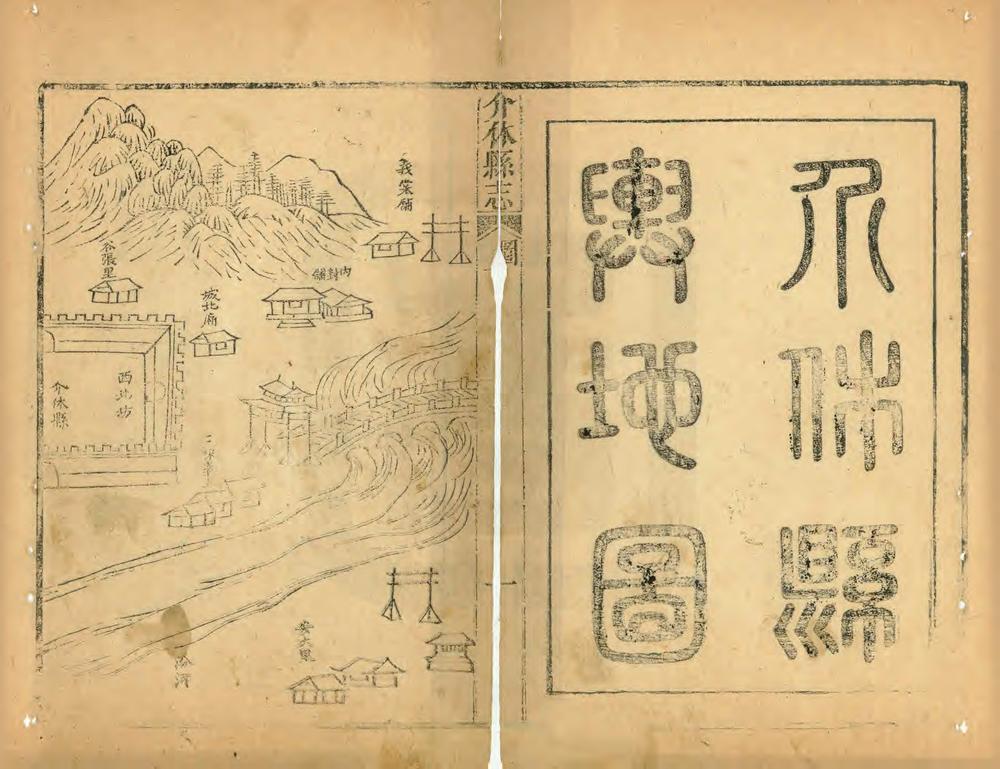 介休縣
輿地圖
介休縣志
圖
一
義棠舖
內封舖
谷張里
城北廂
西北坊
介休縣
安六里
汾河